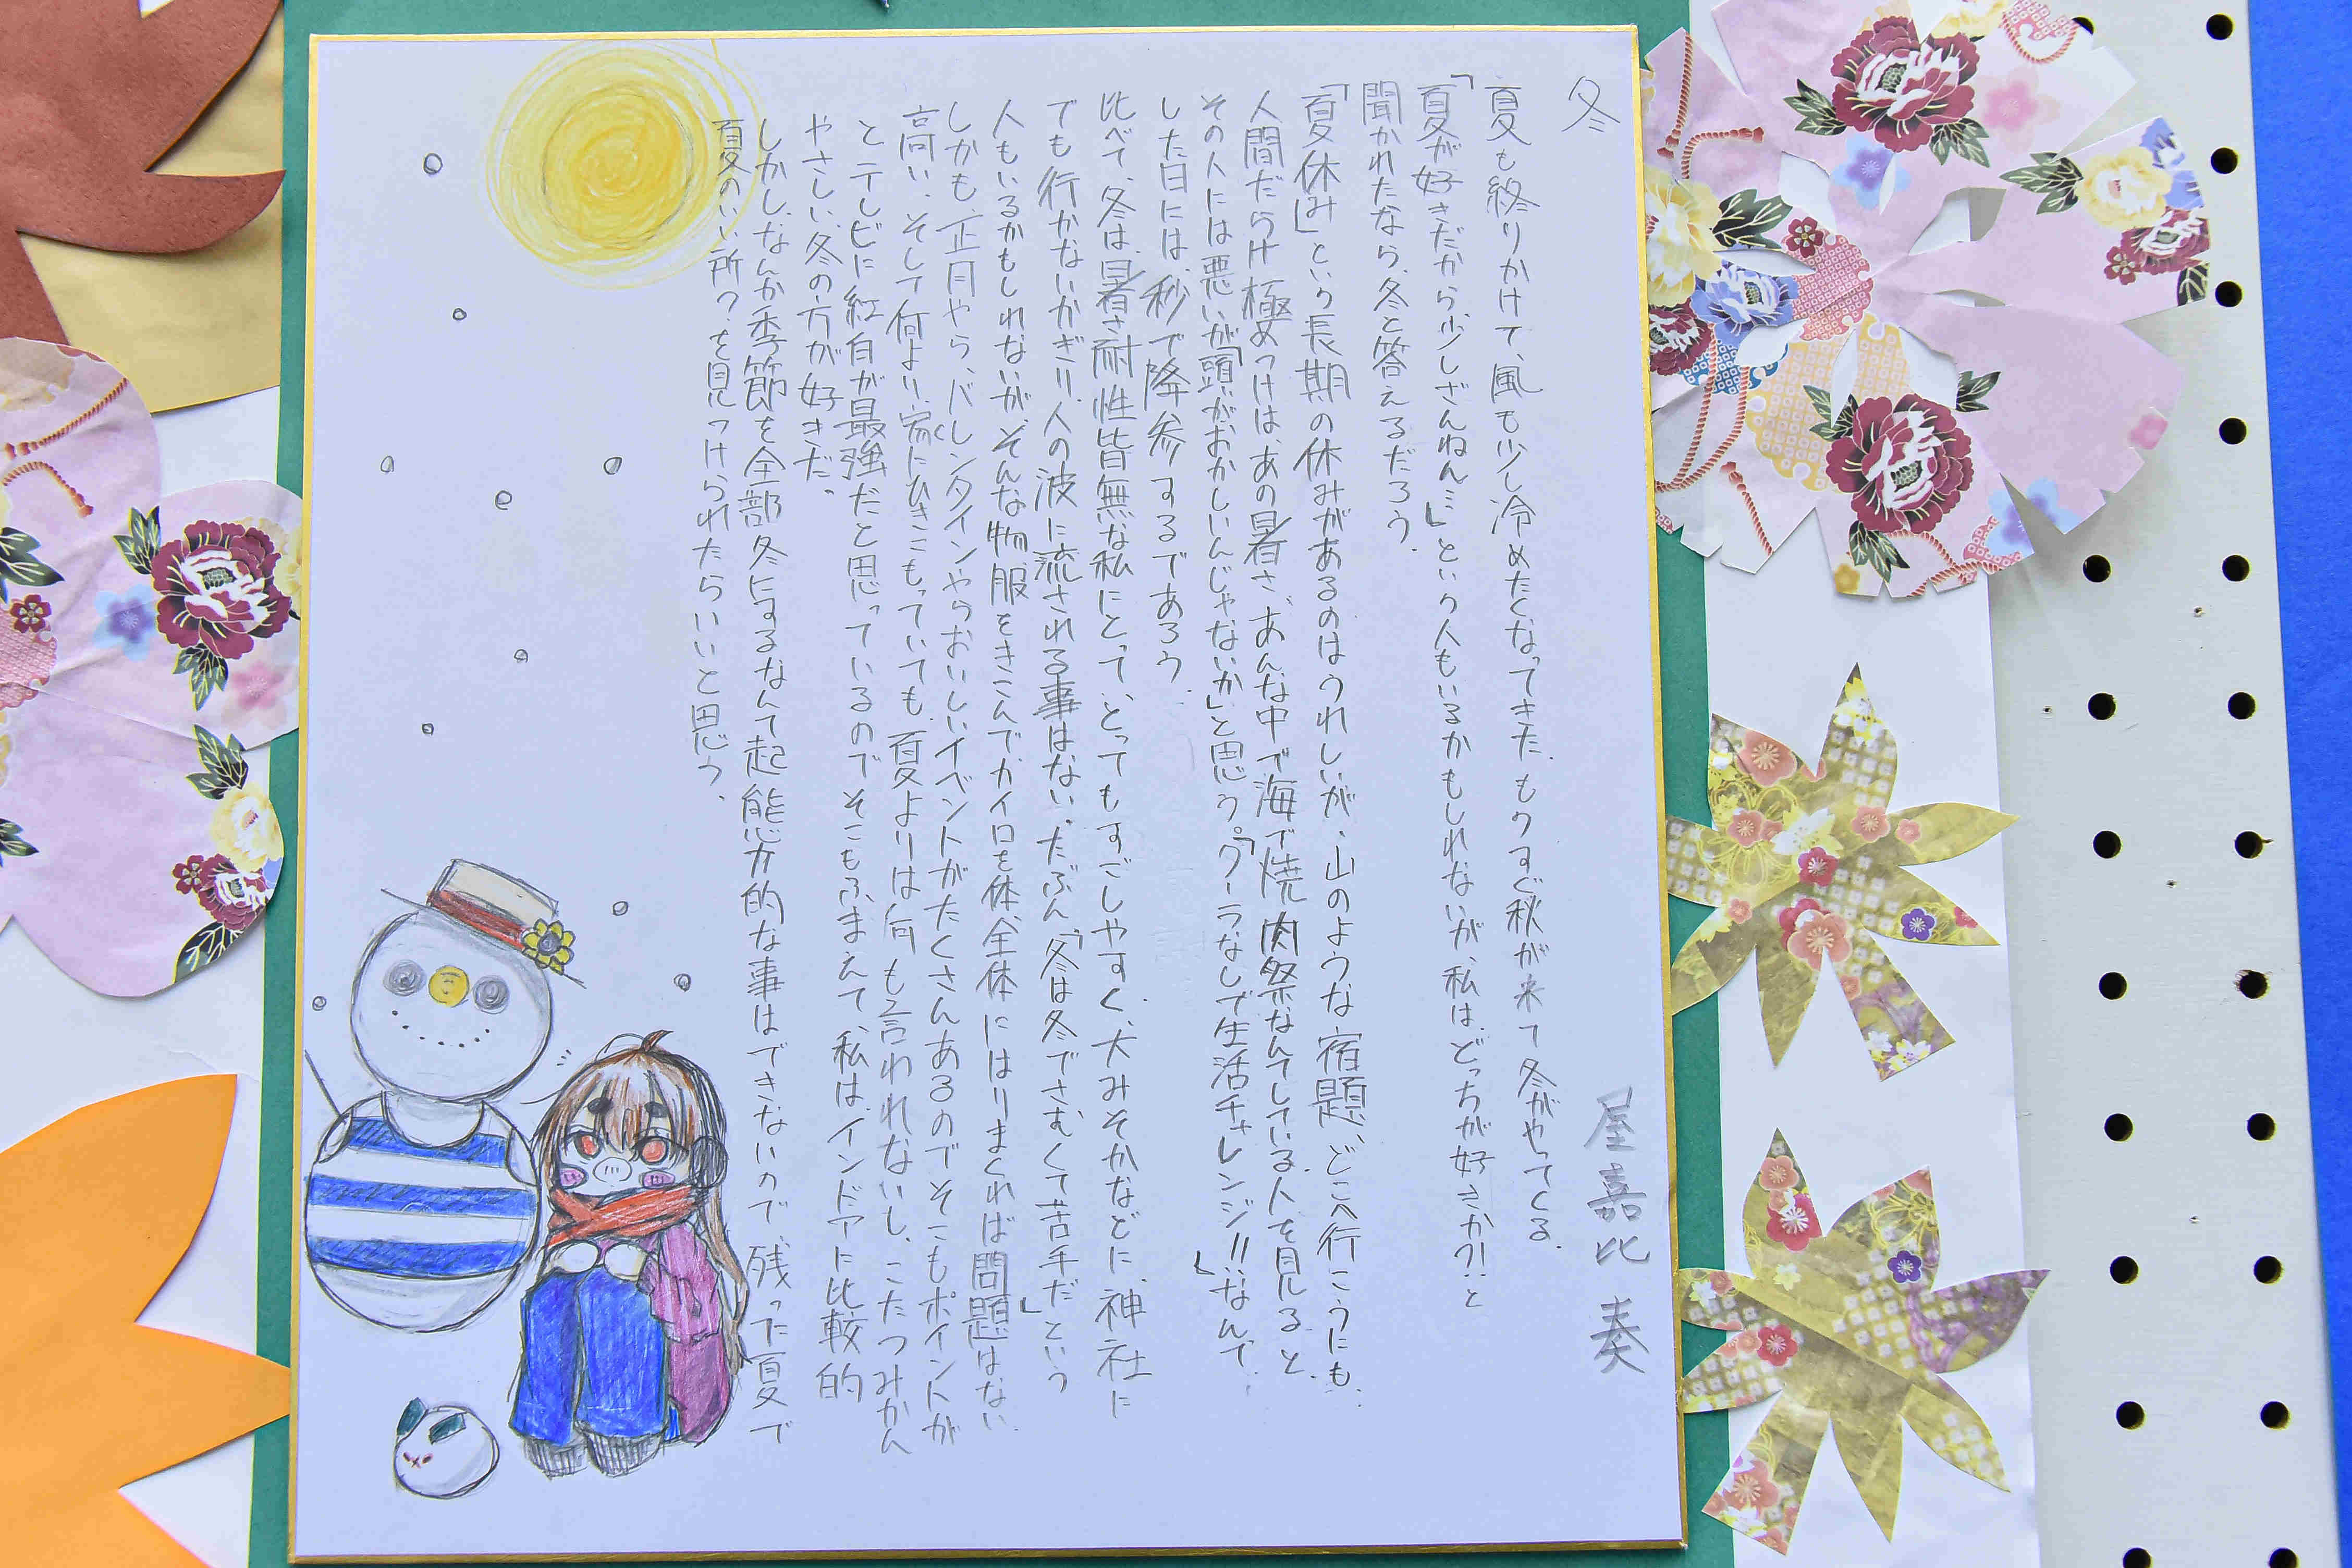 冬
屋嘉比 奏
夏も終りかけて、風も少し冷めたくなってきた。もうすぐ秋が来て冬がやってくる。
「夏が好きだから、少しざんねん…」という人もいるかもしれないが、私は、どっちが好きか?!と
聞かれたなら、冬と答えるだろう。
「夏休み」という長期の休みがあるのはうれしいが、山のような宿題、どこへ行こうにも、
人間だらけ極めつけは、あの暑さ、あんな中で海で焼肉祭なんてしている人を見ると、
その人には悪いが「頭がおかしいんじゃないか」と思う。「クーラなしで生活チャレンジ!!」なんて
した日には、秒で降参するであろう。
比べて、冬は、暑さ耐性皆無な私にとって、とってもすごしやすく、大みそかなどに、神社に
でも行かないかぎり、人の波に流される事はない。たぶん、「冬は冬でさむくて苦手だ」という
人もいるかもしれないが、そんな物、服をきこんでカイロを体、全体にはりまくれば問題はない
しかも、正月やら、バレンタインやらおいしいイベントがたくさんあるのでそこもポイントが
高い、そして何より、家にひきこもっていても、夏よりは何も言われないし、こたつみかん
とテレビに紅白が最強だと思っているので、そこもふまえて、私は、インドアに比較的
やさしい、冬の方が好きだ。
しかし、なんか季節を全部冬にするなんて起能力的な事はできないので、残った夏で
夏のいい所?を見つけられたらいいと思う。